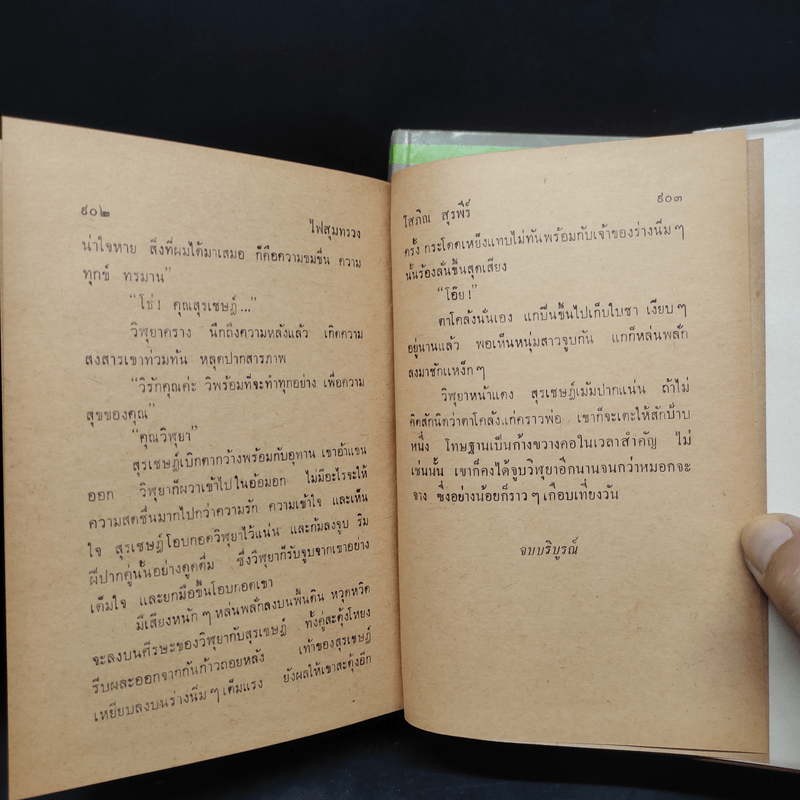 ๙๐๒
ไฟสุมทรวง
น่าใจหาย สิ่งที่ผมได้มาเสมอ ก็คือความขมขื่น ความ
ทุกข์ ทรมาน”
“โธ่! คุณสุรเชษฎ์...”
วิพุยาคราง นึกถึงความหลังแล้ว เกิดความ
สงสารเขาท่วมทัน หลุดปากสารภาพ
“วิรักคุณค่ะ วิพร้อมที่จะทำทุกอย่าง เพื่อความ
สุขของคุณ”
“คุณวิพุยา”
สุรเชษฎ์เบิกตากว้างพร้อมกับอุทาน เขาอ้าแขน
ออก วิพุยาก็ผวาเข้าไปในอ้อมอก ไม่มีอะไรจะให้
ความสดชื่นมากไปกว่าความรัก ความเข้าใจ และเห็น
ใจ สุรเชษฎ์โอบกอดวิพุยาไว้แน่น และก้มลงจูบ ริม
ฝีปากคู่นั้นอย่างดูดดื่ม ซึ่งวิพุยาก็รับจูบจากเขาอย่าง
เต็มใจ และยกมือขึ้นโอบกอดเขา
มีเสียงหนัก ๆ หล่นพลั่กลงบนพื้นดิน หวุดหวิด
จะลงบนศีรษะของวิพุยากับสุรเชษฎ์ ทั้งคู่สะดุ้งโหยง
รีบผละออกจากกันก้าวถอยหลัง เท้าของสุรเชษฎ์
เหยียบลงบนร่างนิ่ม ๆ เต็มแรง ยังผลให้เขาสะดุ้งอีก
โสภิณ สุรพีร์
๙๐๓
ครั้ง กระโดดเหย็งแทบไม่ทันพร้อมกับเจ้าของร่างนิ่ม ๆ
นั้นร้องลั่นขึ้นสุดเสียง
“โอ๊ย!”
ตาโคล้งนั่นเอง แกปีนขึ้นไปเก็บใบชา เงียบ ๆ
อยู่นานแล้ว พอเห็นหนุ่มสาวจูบกัน แกก็หล่นพลั่ก
ลงมาชักแหง็ก ๆ
วิพุยาหน้าแดง สุรเชษฎ์เม้มปากแน่น ถ้าไม่
คิดสักนิดว่าตาโคล้งแก่คราวพ่อ เขาก็จะเตะให้สักป้าบ
หนึ่ง โทษฐานเป็นก้างขวางคอในเวลาสำคัญ ไม่
เช่นนั้น เขาก็คงได้จูบวิพุยาอีกนานจนกว่าหมอกจะ
จาง ซึ่งอย่างน้อยก็ราว ๆ เกือบเที่ยงวัน
จบบริบูรณ์